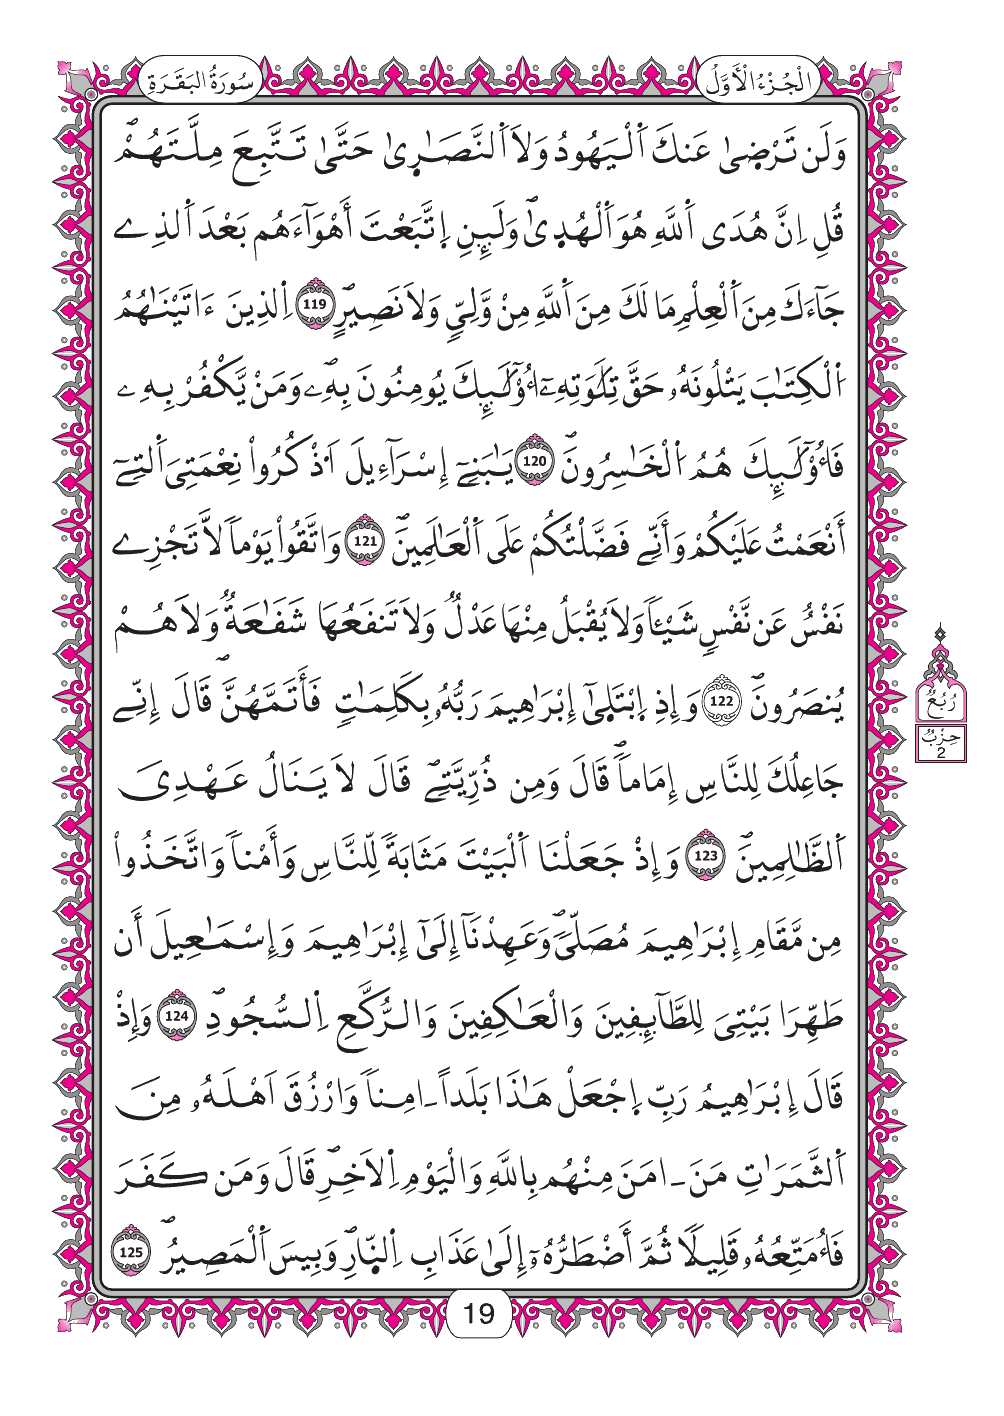 الْجُزْءُ الْأَوَّلُ
سُورَةُ الْبَقَرَةِ
وَلَن تَرْضٜىٰ عَنكَ اَ۬لْيَهُودُ وَلَا اَ۬لنَّصَٰرٜىٰ حَتَّىٰ تَتَّبِعَ مِلَّتَهُمْۖ
قُلِ اِنَّ هُدَى اَ۬للَّهِ هُوَ اَ۬لْهُدٜىٰۖ وَلَئِنِ اِ۪تَّبَعْتَ أَهْوَآءَهُم بَعْدَ اَ۬لذِے
جَآءَكَ مِنَ اَ۬لْعِلْمِ مَا لَكَ مِنَ اَ۬للَّهِ مِنْ وَّلِيّٖ وَلَا نَصِيرٍۖ 119 اِ۬لذِينَ ءَاتَيْنَٰهُمُ
اُ۬لْكِتَٰبَ يَتْلُونَهُۥ حَقَّ تِلَٰوَتِهِۦٓ أُوْلَٰٓئِكَ يُومِنُونَ بِهِۦۖ وَمَنْ يَّكْفُرْ بِهِۦ
فَأُوْلَٰٓئِكَ هُمُ اُ۬لْخَٰسِرُونَۖ 120 يَٰبَنِےٓ إِسْرَآءِيلَ اَ۟ذْكُرُواْ نِعْمَتِيَ اَ۬لتِےٓ
أَنْعَمْتُ عَلَيْكُمْ وَأَنِّے فَضَّلْتُكُمْ عَلَى اَ۬لْعَٰلَمِينَۖ 121 وَاتَّقُواْ يَوْماٗ لَّا تَجْزِے
نَفْسٌ عَن نَّفْسٖ شَيْـٔاٗ وَلَا يُقْبَلُ مِنْهَا عَدْلٞ وَلَا تَنفَعُهَا شَفَٰعَةٞ وَلَا هُمْ
يُنصَرُونَۖ 122 وَإِذِ اِ۪بْتَلٜىٰٓ إِبْرَٰهِيمَ رَبُّهُۥ بِكَلِمَٰتٖ فَأَتَمَّهُنَّۖ قَالَ إِنِّے
جَاعِلُكَ لِلنَّاسِ إِمَاماٗۖ قَالَ وَمِن ذُرِّيَّتِےۖ قَالَ لَا يَنَالُ عَهْدِي
اَ۬لظَّٰلِمِينَۖ 123 وَإِذْ جَعَلْنَا اَ۬لْبَيْتَ مَثَابَةٗ لِّلنَّاسِ وَأَمْناٗ وَاتَّخَذُواْ
مِن مَّقَامِ إِبْرَٰهِيمَ مُصَلّٗيۖ وَعَهِدْنَآ إِلَىٰٓ إِبْرَٰهِيمَ وَإِسْمَٰعِيلَ أَن
طَهِّرَا بَيْتِيَ لِلطَّآئِفِينَ وَالْعَٰكِفِينَ وَالرُّكَّعِ اِ۬لسُّجُودِۖ 124 وَإِذْ
قَالَ إِبْرَٰهِيمُ رَبِّ اِ۪جْعَلْ هَٰذَا بَلَداً ـ اٰمِناٗ وَارْزُقَ اَهْلَهُۥ مِنَ
اَ۬لثَّمَرَٰتِ مَنَ ـ اٰمَنَ مِنْهُم بِاللَّهِ وَالْيَوْمِ اِ۬لَاخِرِۖ قَالَ وَمَن كَفَرَ
فَأُمَتِّعُهُۥ قَلِيلًا ثُمَّ أَضْطَرُّهُۥٓ إِلَىٰ عَذَابِ اِ۬لنّ۪ارِۖ وَبِيسَ اَ۬لْمَصِيرُۖ 125
رُبُعُ
حِزْبٌ
2
19